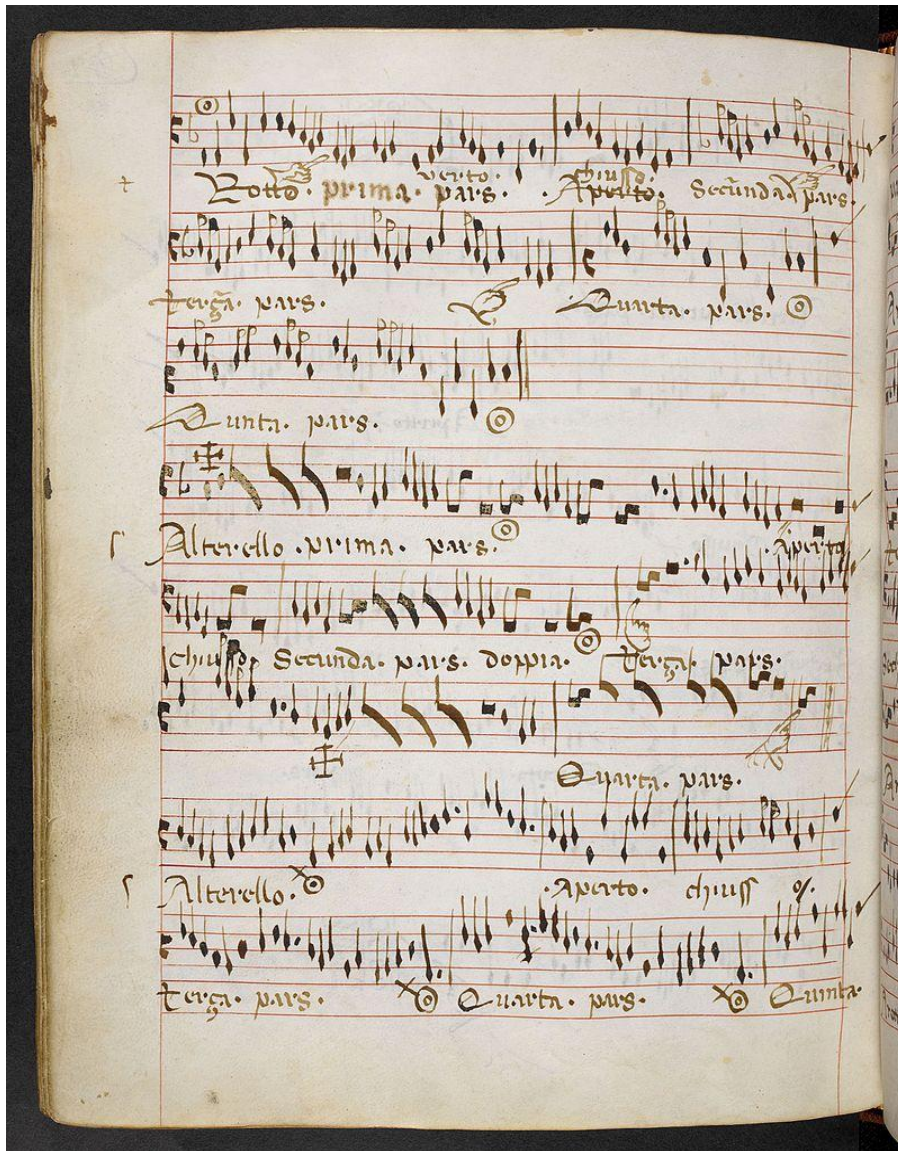 verto. chiusso.
Rotto. prima. pars. Aperto. Secunda. pars.
terça. pars. Quarta. pars.
Quinta. pars.
Alterello. prima. pars. Aperto
chiusso Secunda. pars. doppia. terça. pars.
Quarta. pars.
Alterello. Aperto. chiuss
terça. pars. Quarta. pars. Quinta.